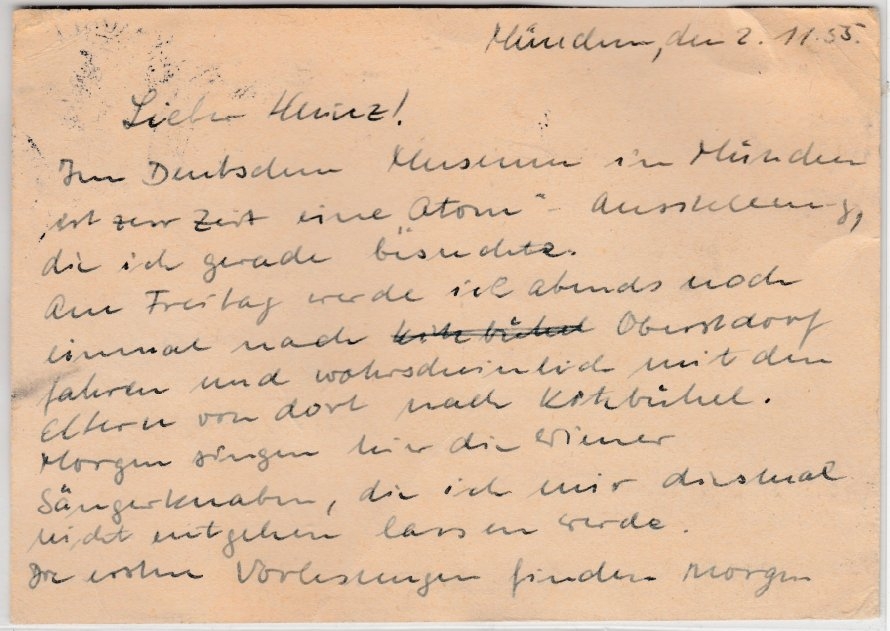 München, den 2. 11. 55.
Lieber Heinz!
Im Deutschen Museum in München
ist zur Zeit eine "Atom"-Ausstellung,
die ich gerade besuchte.
Am Freitag werde ich abends noch
einmal nach Kitzbühel Oberstdorf
fahren und wahrscheinlich mit den
Eltern von dort nach Kitzbühel.
Morgen singen hier die Wiener
Sängerknaben, die ich mir diesmal
nicht entgehen lassen werde.
Die ersten Vorlesungen finden morgen